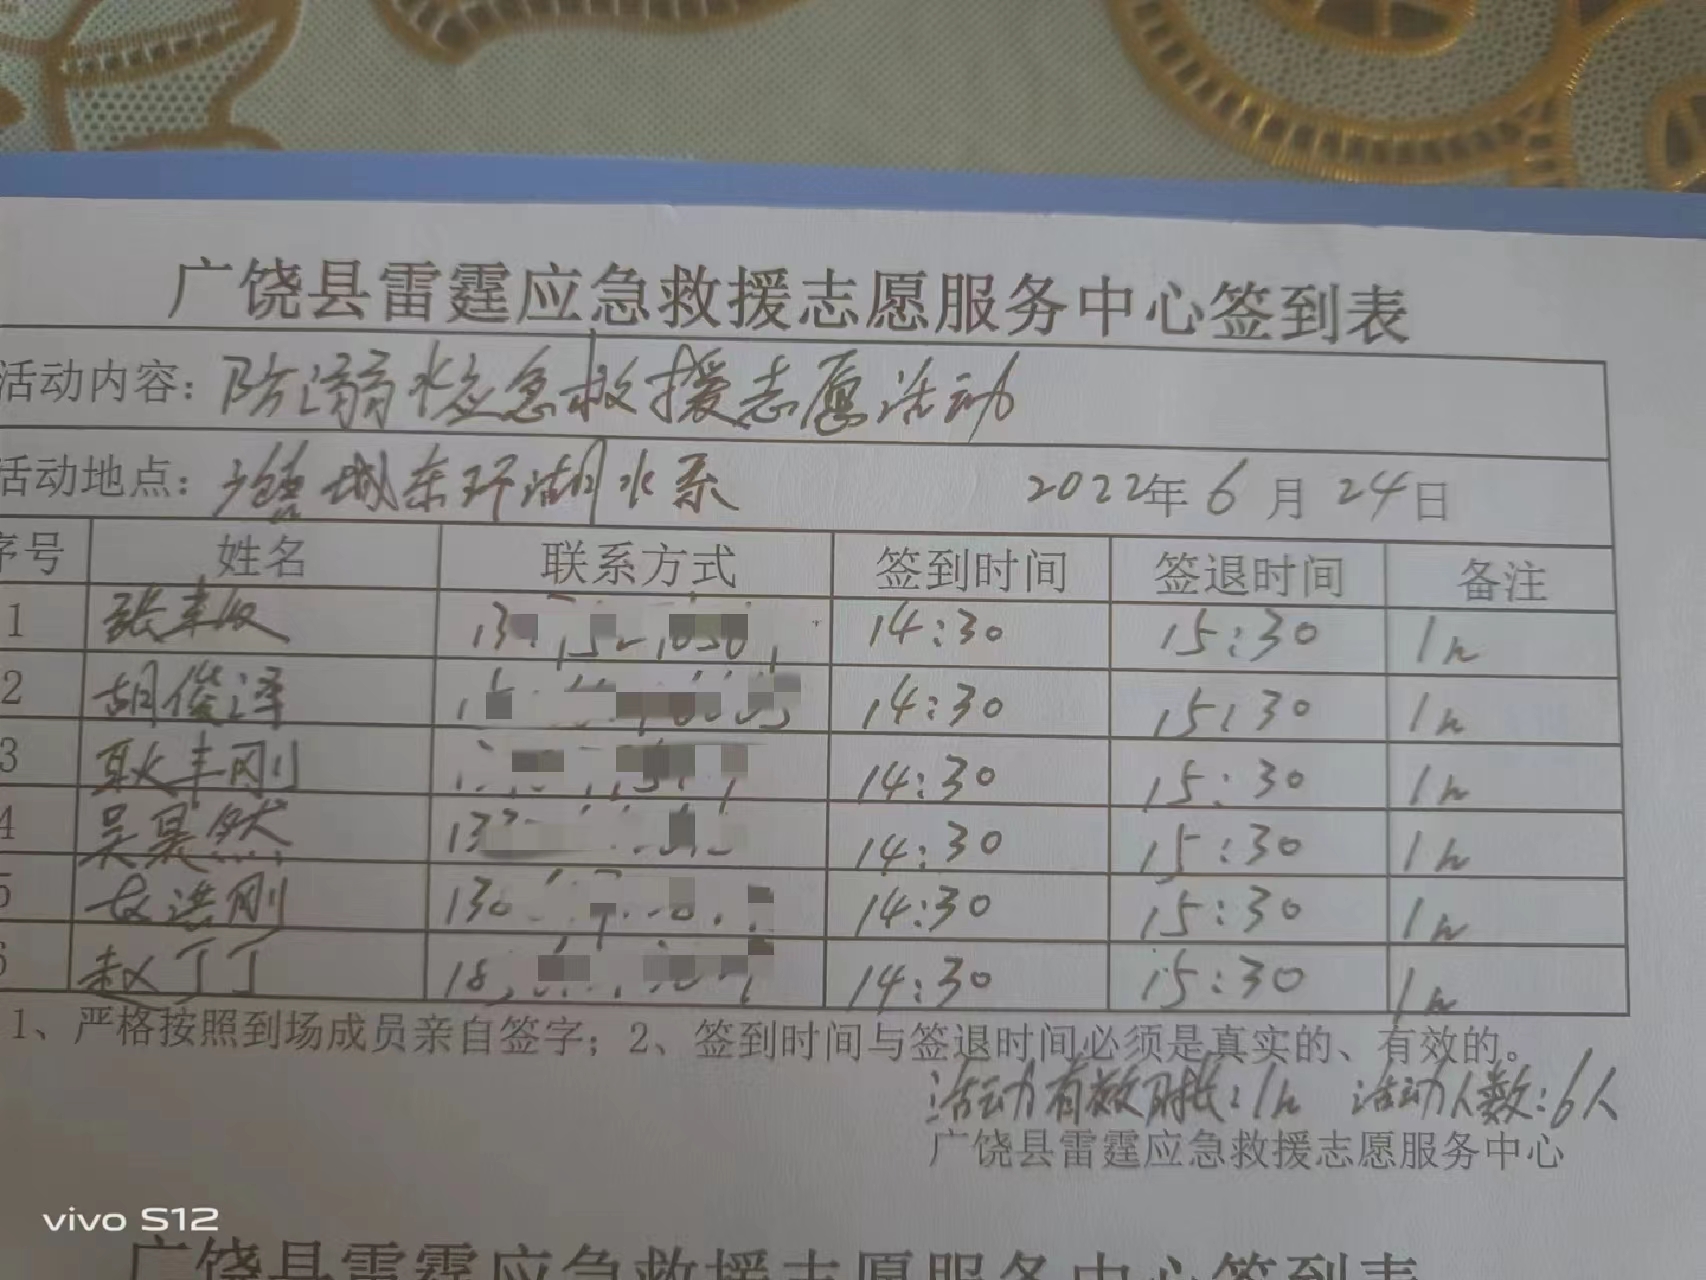 广饶县雷霆应急救援志愿服务中心签到表
活动内容：防溺水应急救援志愿活动
活动地点：广饶城东环湖水系 2022年6月24日
序号 姓名 联系方式 签到时间 签退时间 备注
1 14:30 15:30 1h
2 胡俊泽 14:30 15:30 1h
3 耿丰刚 14:30 15:30 1h
4 吴昊然 14:30 15:30 1h
5 14:30 15:30 1h
6 赵丁丁 14:30 15:30 1h
1、严格按照到场成员亲自签字；2、签到时间与签退时间必须是真实的、有效的。
活动有效时长：1h 活动人数：6人
广饶县雷霆应急救援志愿服务中心
vivo S12
广饶县雷霆应急救援志愿服务中心签到表